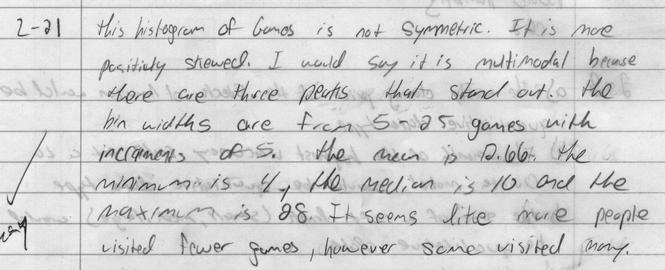 2-21 this histogram of Games is not symmetric. It is more
positivly skewed. I would say it is multimodal because
there are three peaks that stand out. the
bin widths are from 5-25 games with
increments of 5. the mean is 12.66. the
minimum is 4, the median is 10 and the
maximum is 28. It seems like more people
visited fewer games, however some visited many.